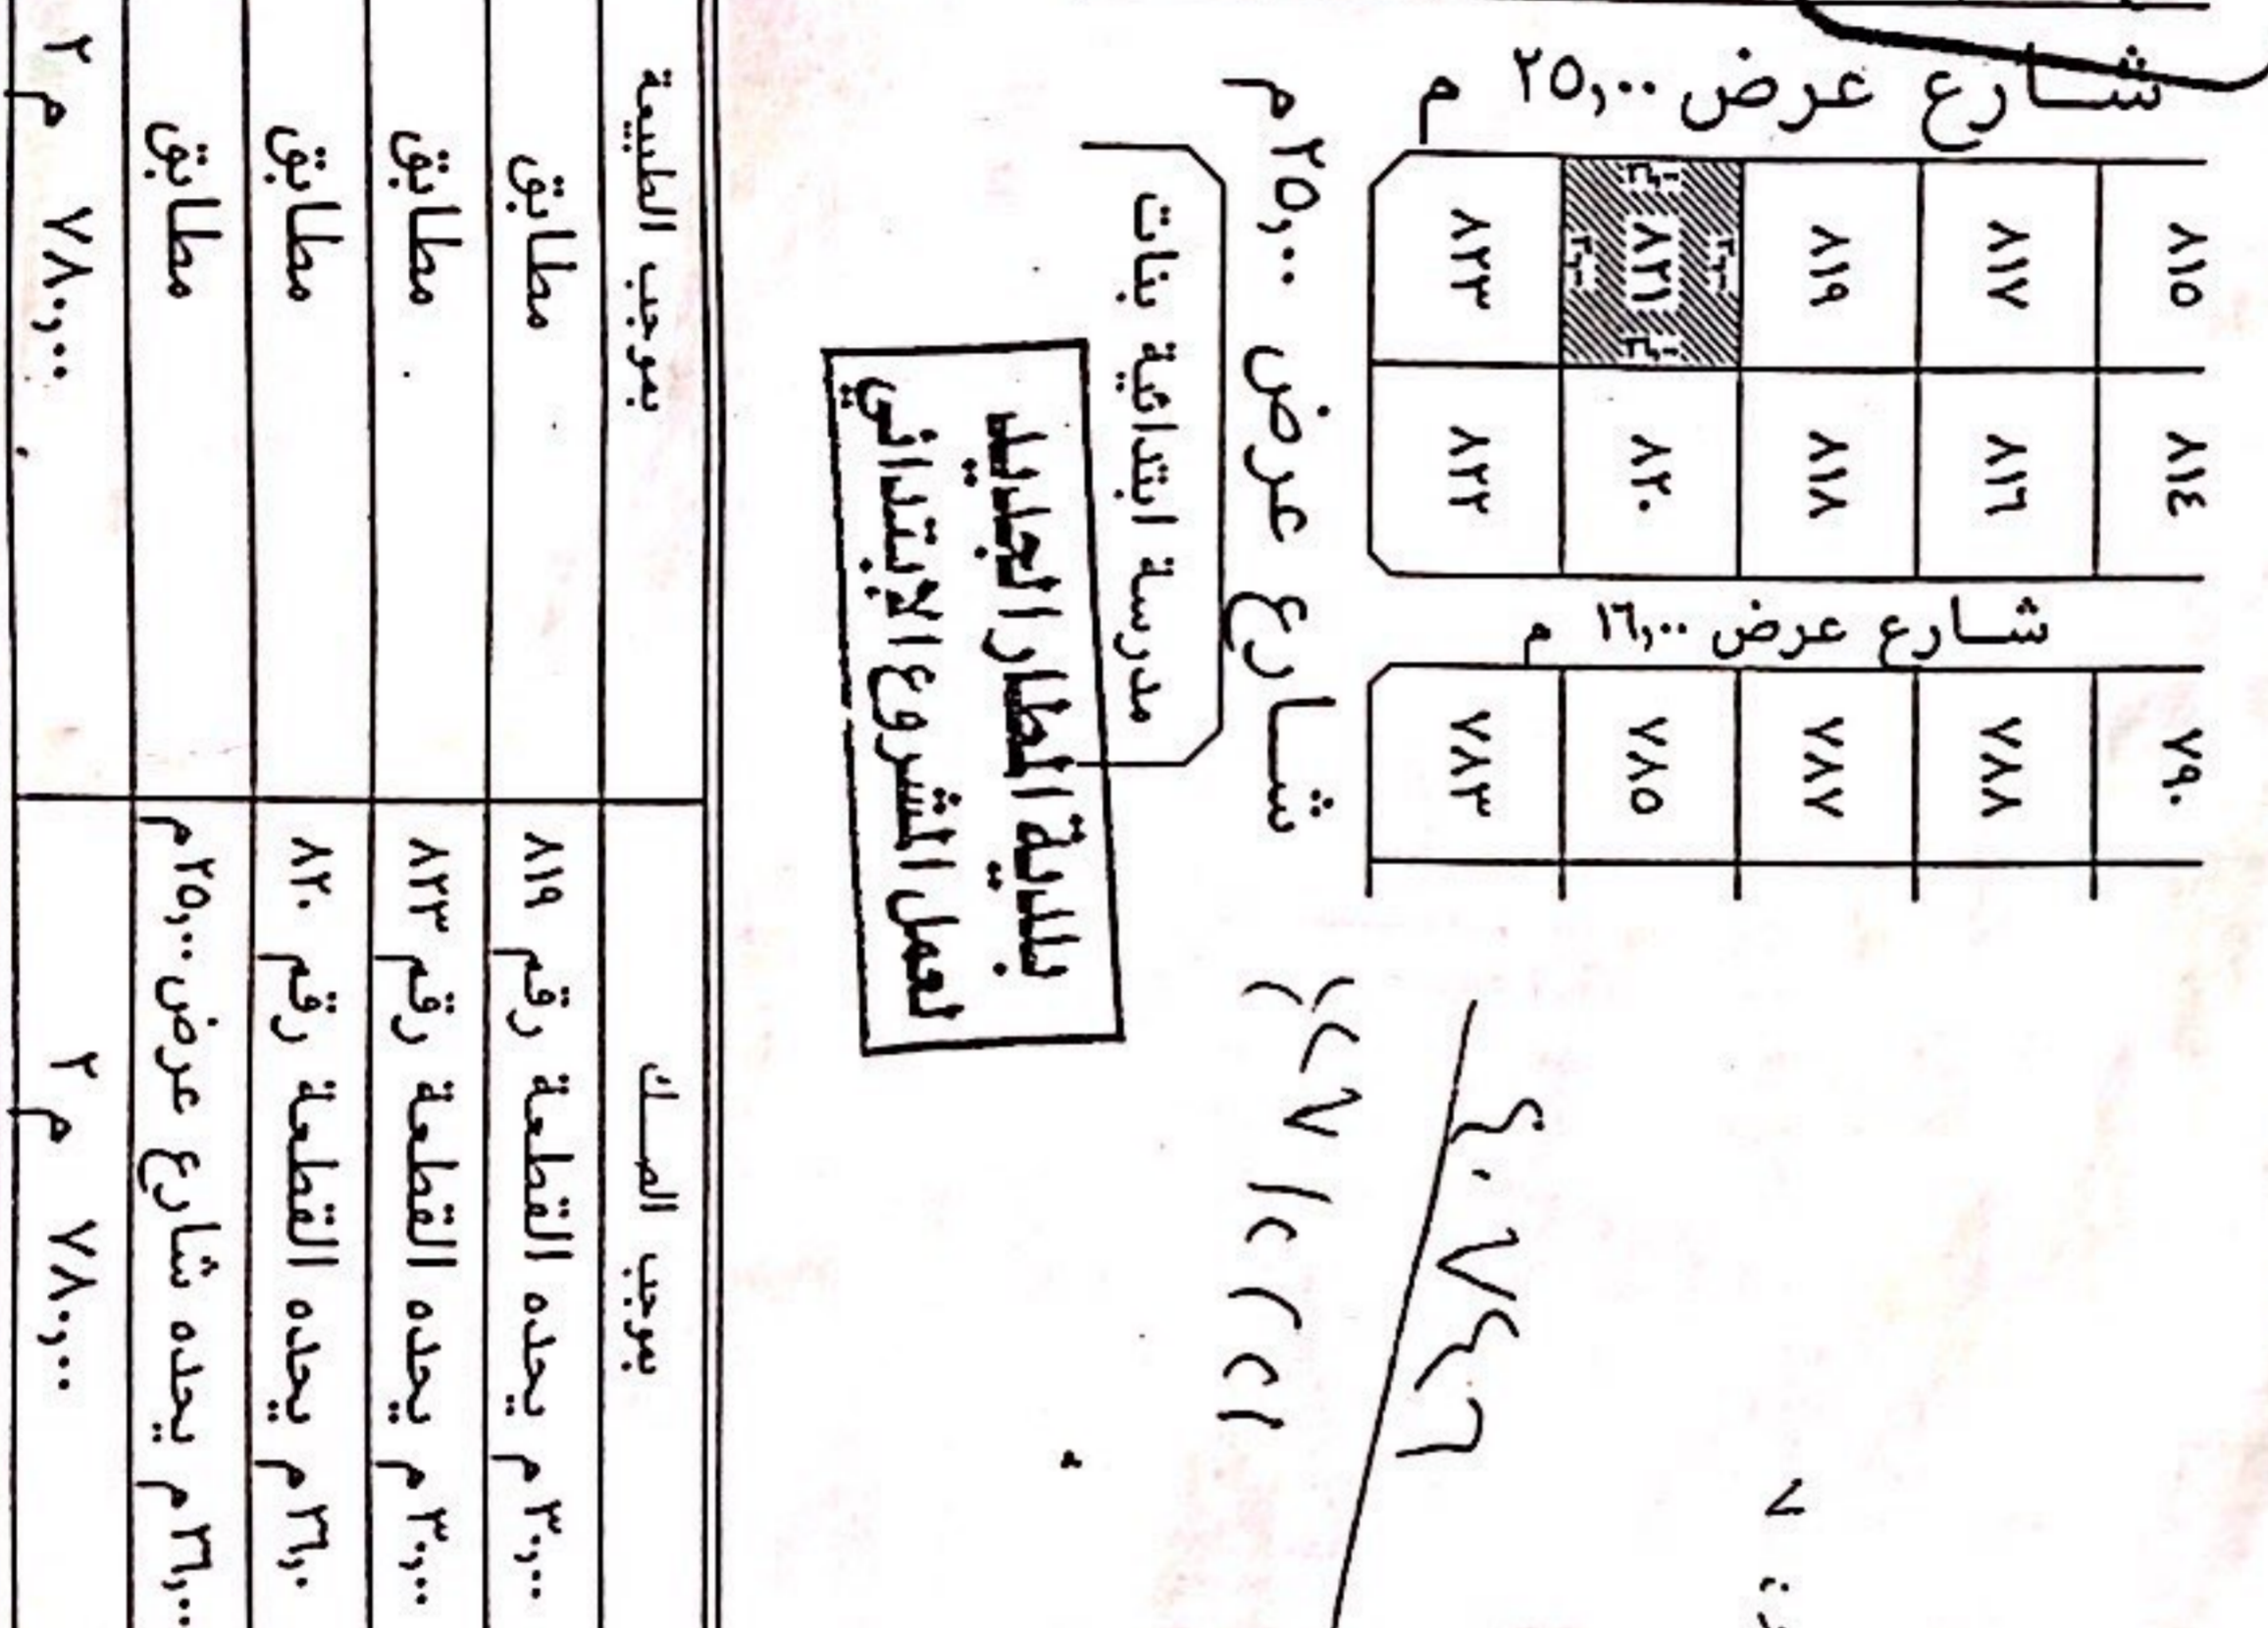 شارع عرض ٢٥,٠٠ م
٨١٥
٨١٧
٨١٩
٨٢١
٨٢٣
٨١٤
٨١٦
٨١٨
٨٢٠
٨٢٢
شارع عرض ١٦,٠٠ م
٧٩٠
٧٨٨
٧٨٧
٧٨٥
٧٨٣
شارع عرض ٢٥,٠٠م
مدرسة ابتدائية بنات
بلدية المطار الجديد
لعمل المشروع الابتدائي
بموجب الصك
بموجب الطبيعة
٣٠,٠٠م يحده القطعة رقم ٨١٩
مطابق
٣٠,٠٠م يحده القطعة رقم ٨٢٣
مطابق
٢٦,٠م يحده القطعة رقم ٨٢٠
مطابق
٢٦,٠٠م يحده شارع عرض ٢٥,٠٠م
مطابق
٧٨٠,٠٠ م٢
٧٨٠,٠٠ م٢